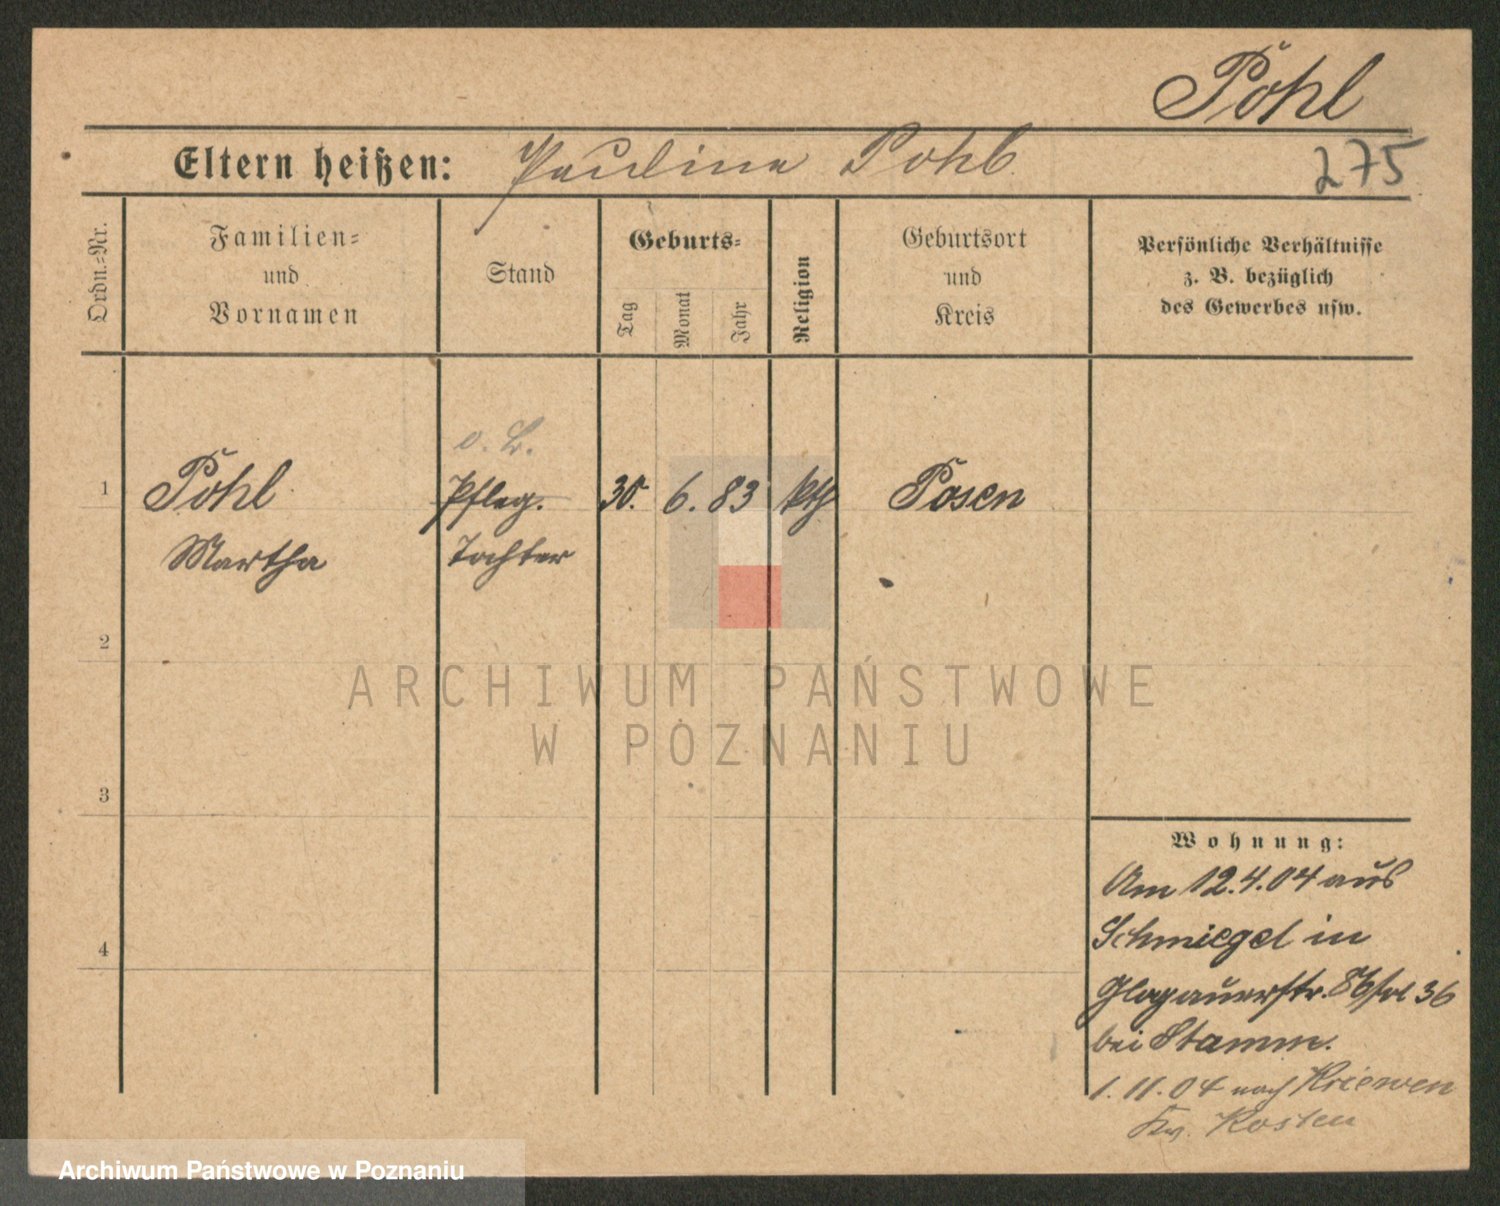 Pohl
Eltern heißen: Pauline Pohl.
275
Ordn.=Nr.
Familien=
und
Vornamen
Stand
Geburts=
Tag
Monat
Jahr
Religion
Geburtsort
und
Kreis
Persönliche Verhältnisse
z. B. bezüglich
des Gewerbes usw.
o. B.
1 Pohl Pfleg. 30. 6. 83 kth Posen
Martha Tochter
2
3
4
Wohnung:
Am 12.4.04 aus
Schmiegel in
Glogauerstr. 36
bei Stamm.
1. 11. 04 nach Kriewen
Kr. Kosten
ARCHIWUM PAŃSTWOWE
W POZNANIU
Archiwum Państwowe w Poznaniu